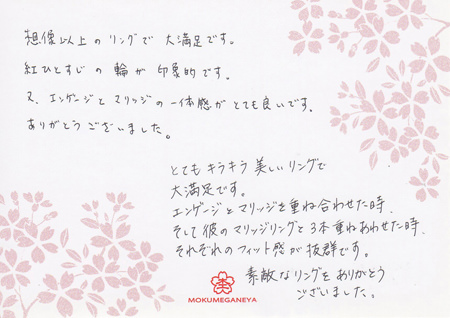 想像以上のリングで大満足です。
紅ひとすじの輪が印象的です。
又、エンゲージとマリッジの一体感がとても良いです。
ありがとうございました。
とてもキラキラ美しいリングで
大満足です。
エンゲージとマリッジを重ね合わせた時、
そして彼のマリッジリングと3本重ねあわせた時、
それぞれのフィット感が抜群です。
素敵なリングをありがとう
ございました。
MOKUMEGANEYA